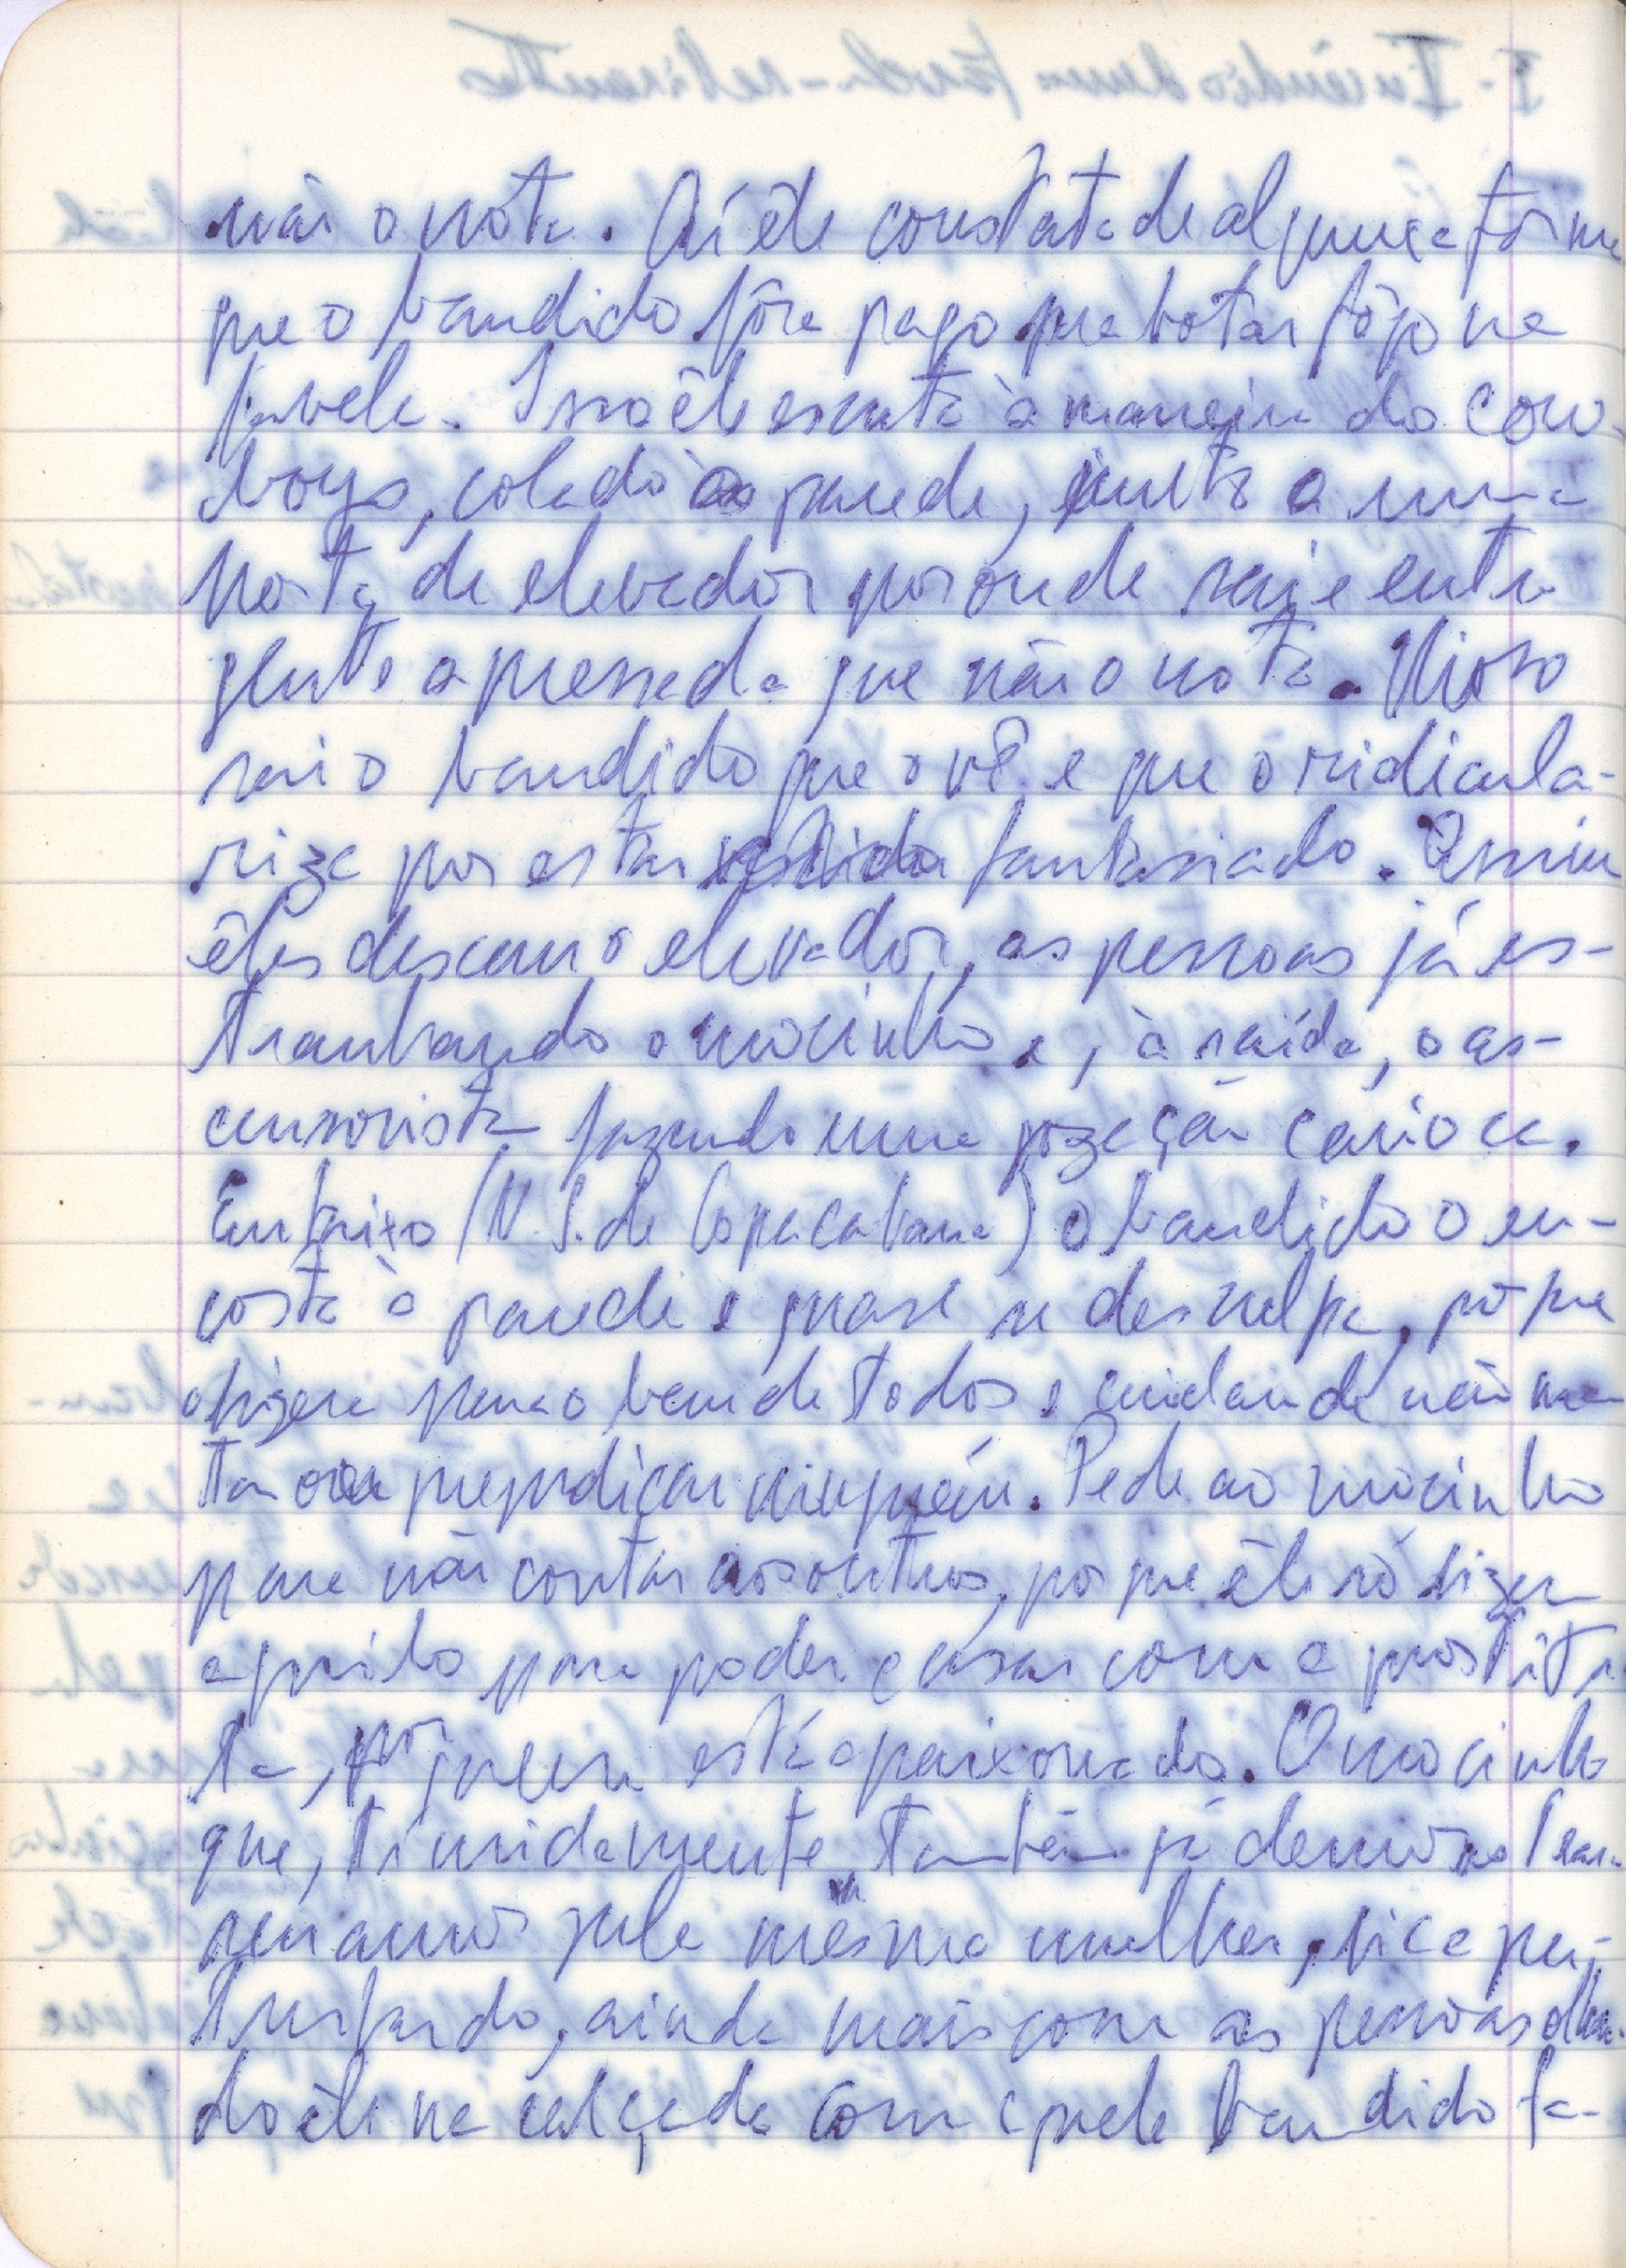 não o nota. Aí êle constata de alguma forma
que o bandido fôra pago pra botar fôgo na
favela. Isso êle escuta à maneira do cow-
boys, colado à parede, junto a uma
porta de elevador por onde sai e entra
gente apressada que não o nota. Nisso
sai o bandido que o vê e que o ridicula-
riza por estar vestido fantasiado. Assim
êles descem o elevador, as pessoas já es-
tranhando o mocinho e, à saída, o as-
censorista fazendo uma gozação carioca.
Embaixo (N. S. de Copacabana) o bandido o en-
costa à parede e quase se desculpa, pôrque
o fizera para o bem de todos e cuidando não ma
tar ou prejudicar ninguém. Pede ao mocinho
para não contar aos outros, porque êle só fizera
aquilo para poder casar com a prostitu
ta, por quem está apaixonado. O mocinho
que, timidamente, também já demonstrara
seu amor pela mesma mulher, fica per-
turbado, ainda mais com as pessoas olhan-
do êle na calçada com aquele bandido fa-